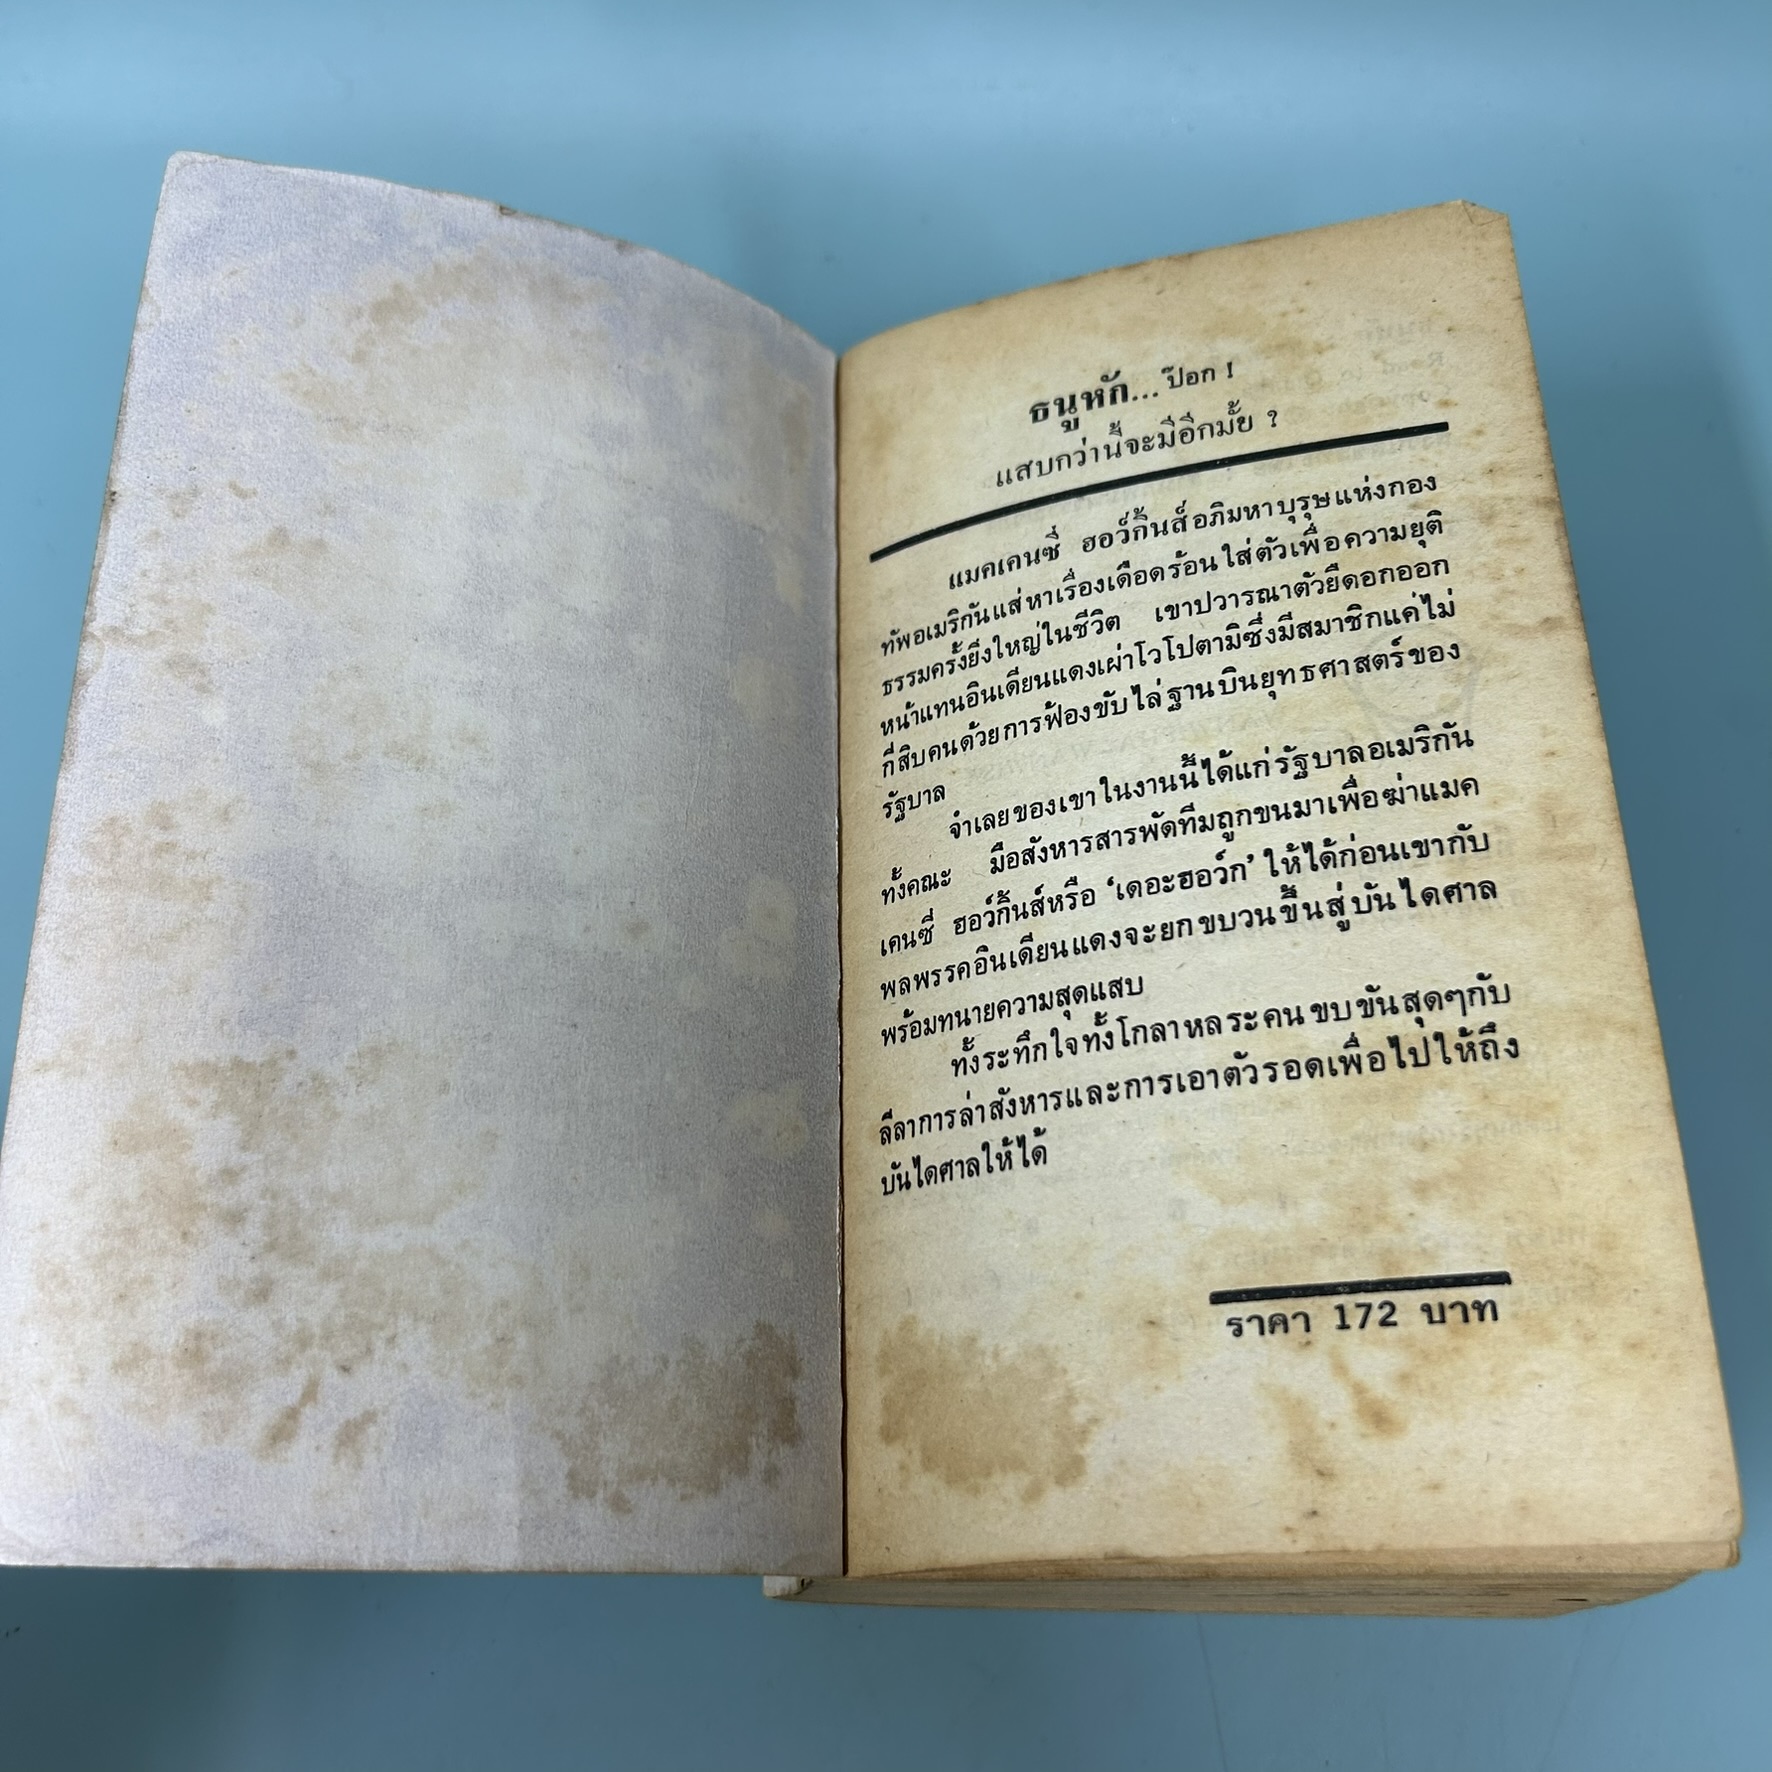 ธนูหัก...ป๊อก !
แสบกว่านี้จะมีอีกมั้ย ?
แมคเคนซี่ ฮอว์กิ้นส์อภิมหาบุรุษแห่งกอง
ทัพอเมริกันแส่หาเรื่องเดือดร้อนใส่ตัวเพื่อความยุติ
ธรรมครั้งยิ่งใหญ่ในชีวิต เขาปวารณาตัวยืดอกออก
หน้าแทนอินเดียนแดงเผ่าโวโปตามิซึ่งมีสมาชิกแค่ไม่
กี่สิบคนด้วยการฟ้องขับไล่ฐานบินยุทธศาสตร์ของ
รัฐบาล
จำเลยของเขาในงานนี้ได้แก่รัฐบาลอเมริกัน
ทั้งคณะ มือสังหารสารพัดทีมถูกขนมาเพื่อฆ่าแมค
เคนซี่ ฮอว์กิ้นส์หรือ 'เดอะฮอว์ก' ให้ได้ก่อนเขากับ
พลพรรคอินเดียนแดงจะยกขบวนขึ้นสู่บันไดศาล
พร้อมทนายความสุดแสบ
ทั้งระทึกใจทั้งโกลาหลระคนขบขันสุดๆกับ
ลีลาการล่าสังหารและการเอาตัวรอดเพื่อไปให้ถึง
บันไดศาลให้ได้
ราคา 172 บาท